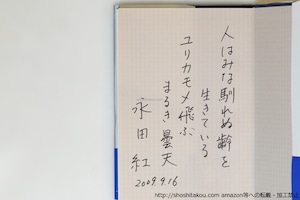 人はみな馴れぬ齢を
生きている
ユリカモメ飛ぶ
まるき曇天
永田紅
2009.9.16
http://shoshitakou.com amazon等への転載・加工禁止